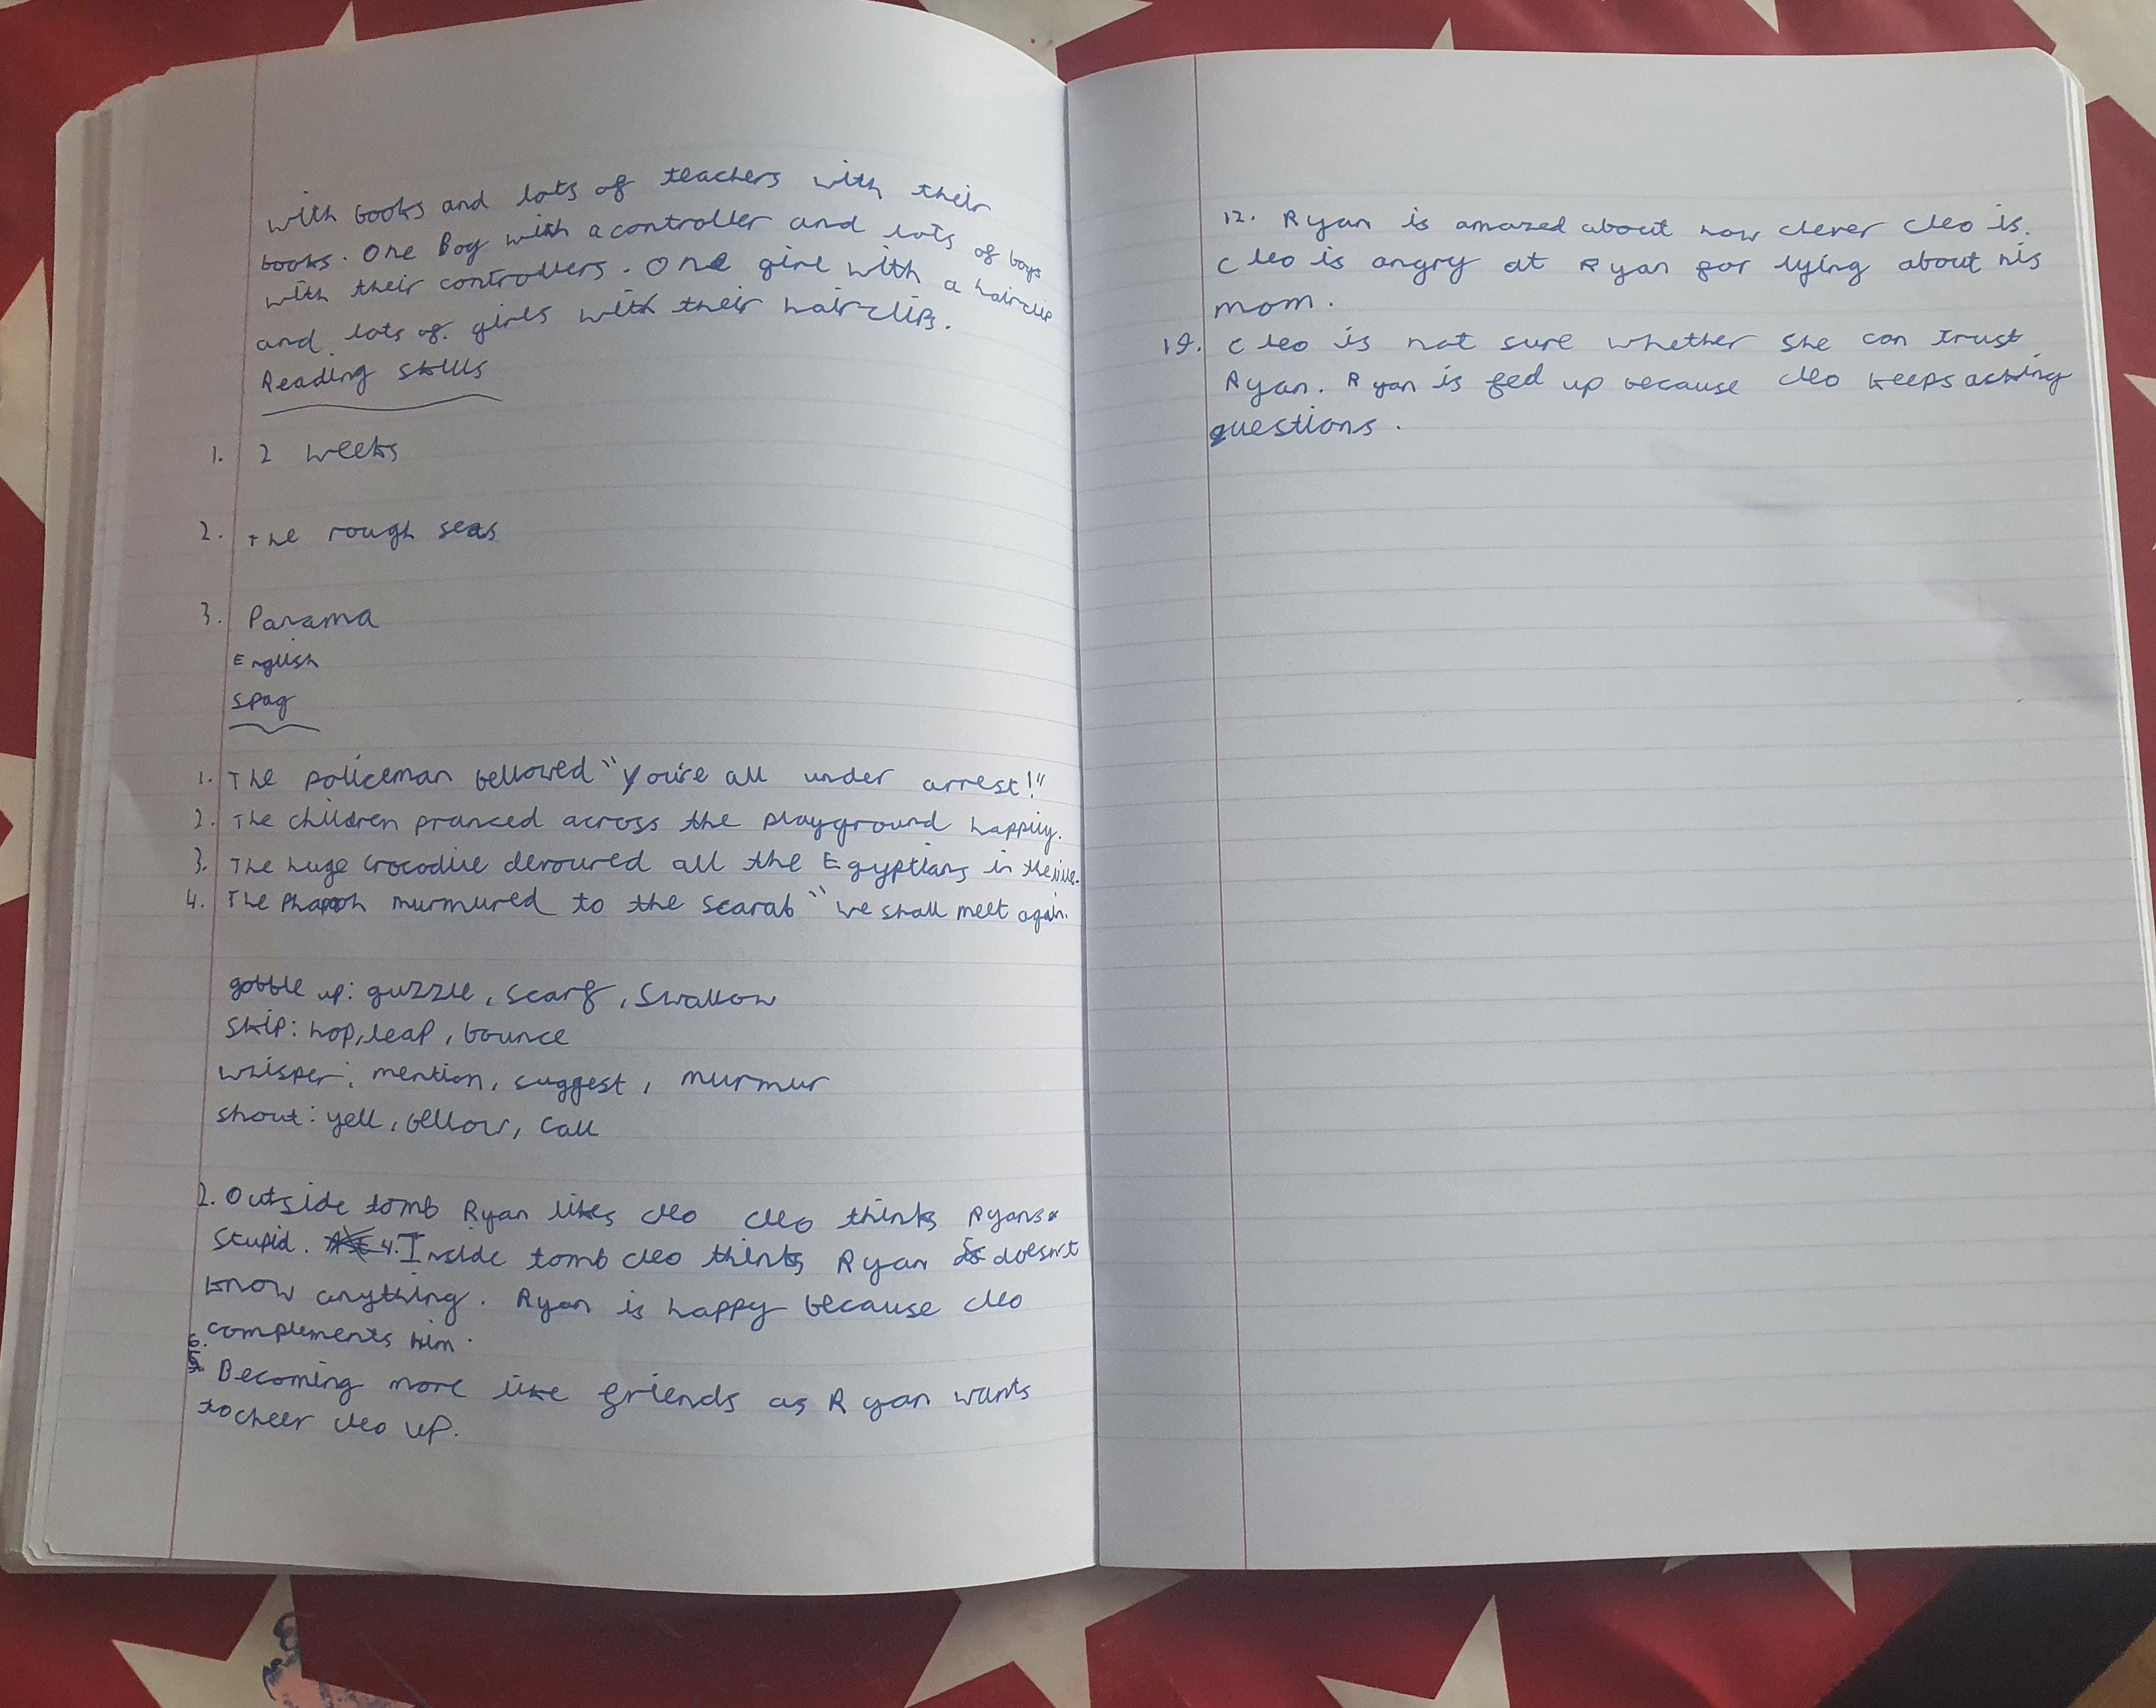 with books and lots of teachers with their
books. One Boy with a controller and lots of boys
with their controllers. One girl with a hairclip
and lots of girls with their hairclips.
Reading skills
1. 2 weeks
2. The rough seas
3. Panama
English
Spag
1. The policeman bellowed "you're all under arrest!"
2. The children pranced across the playground happily.
3. The huge crocodile devoured all the Egyptians in the
4. The murmured to the scarab "we shall meet again.
gobble up: guzzle, scarf, swallow
skip: hop, leap, bounce
whisper: mention, suggest, murmur
shout: yell, bellow, call
2. Outside tomb Ryan likes cleo cleo thinks Ryans
stupid. 4. Inside tomb cleo thinks Ryan doesn't
know anything. Ryan is happy because cleo
complements him.
6. Becoming more like friends as R yan wants
to cheer cleo up.
12. Ryan is amazed about how clever cleo is.
cleo is angry at Ryan for lying about his
mom.
19. cleo is not sure whether she can trust
Ryan. Ryan is fed up because cleo keeps acking
questions.